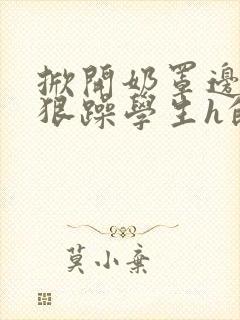 掀開奶罩邊
狠躁學生h
莫小棄